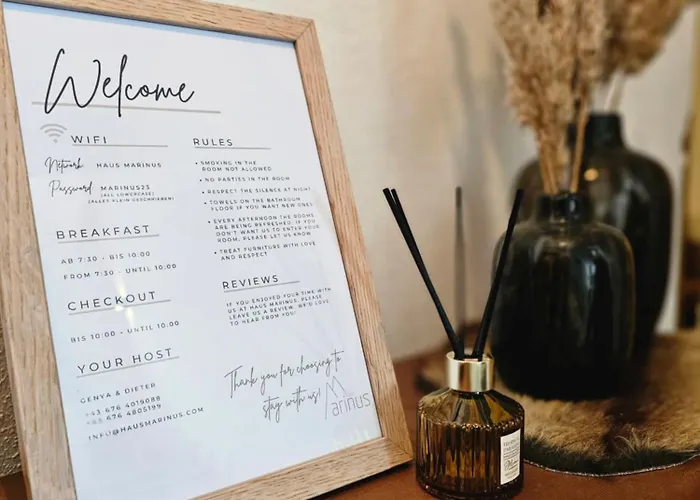 Welcome
WIFI
Network HAUS MARINUS
Password MARINUS23
(ALL LOWERCASE)
(ALLES KLEIN GESCHRIEBEN)
BREAKFAST
AB 7:30 - BIS 10:00
FROM 7:30 - UNTIL 10:00
CHECKOUT
BIS 10:00 - UNTIL 10:00
YOUR HOST
GENYA & DIETER
+43 676 4019088
+43 676 4805199
INFO@HAUSMARINUS.COM
RULES
• SMOKING IN THE
ROOM NOT ALLOWED
• NO PARTIES IN THE ROOM
• RESPECT THE SILENCE AT NIGHT
• TOWELS ON THE BATHROOM
FLOOR IF YOU WANT NEW ONES
• EVERY AFTERNOON THE ROOMS
ARE BEING REFRESHED. IF YOU
DON'T WANT US TO ENTER YOUR
ROOM, PLEASE LET US KNOW
• TREAT FURNITURE WITH LOVE
AND RESPECT
REVIEWS
IF YOU ENJOYED YOUR TIME WITH
US AT HAUS MARINUS, PLEASE
LEAVE US A REVIEW, WE'D LOVE
TO HEAR FROM YOU!
Thank you for choosing to
stay with us!
Marinus